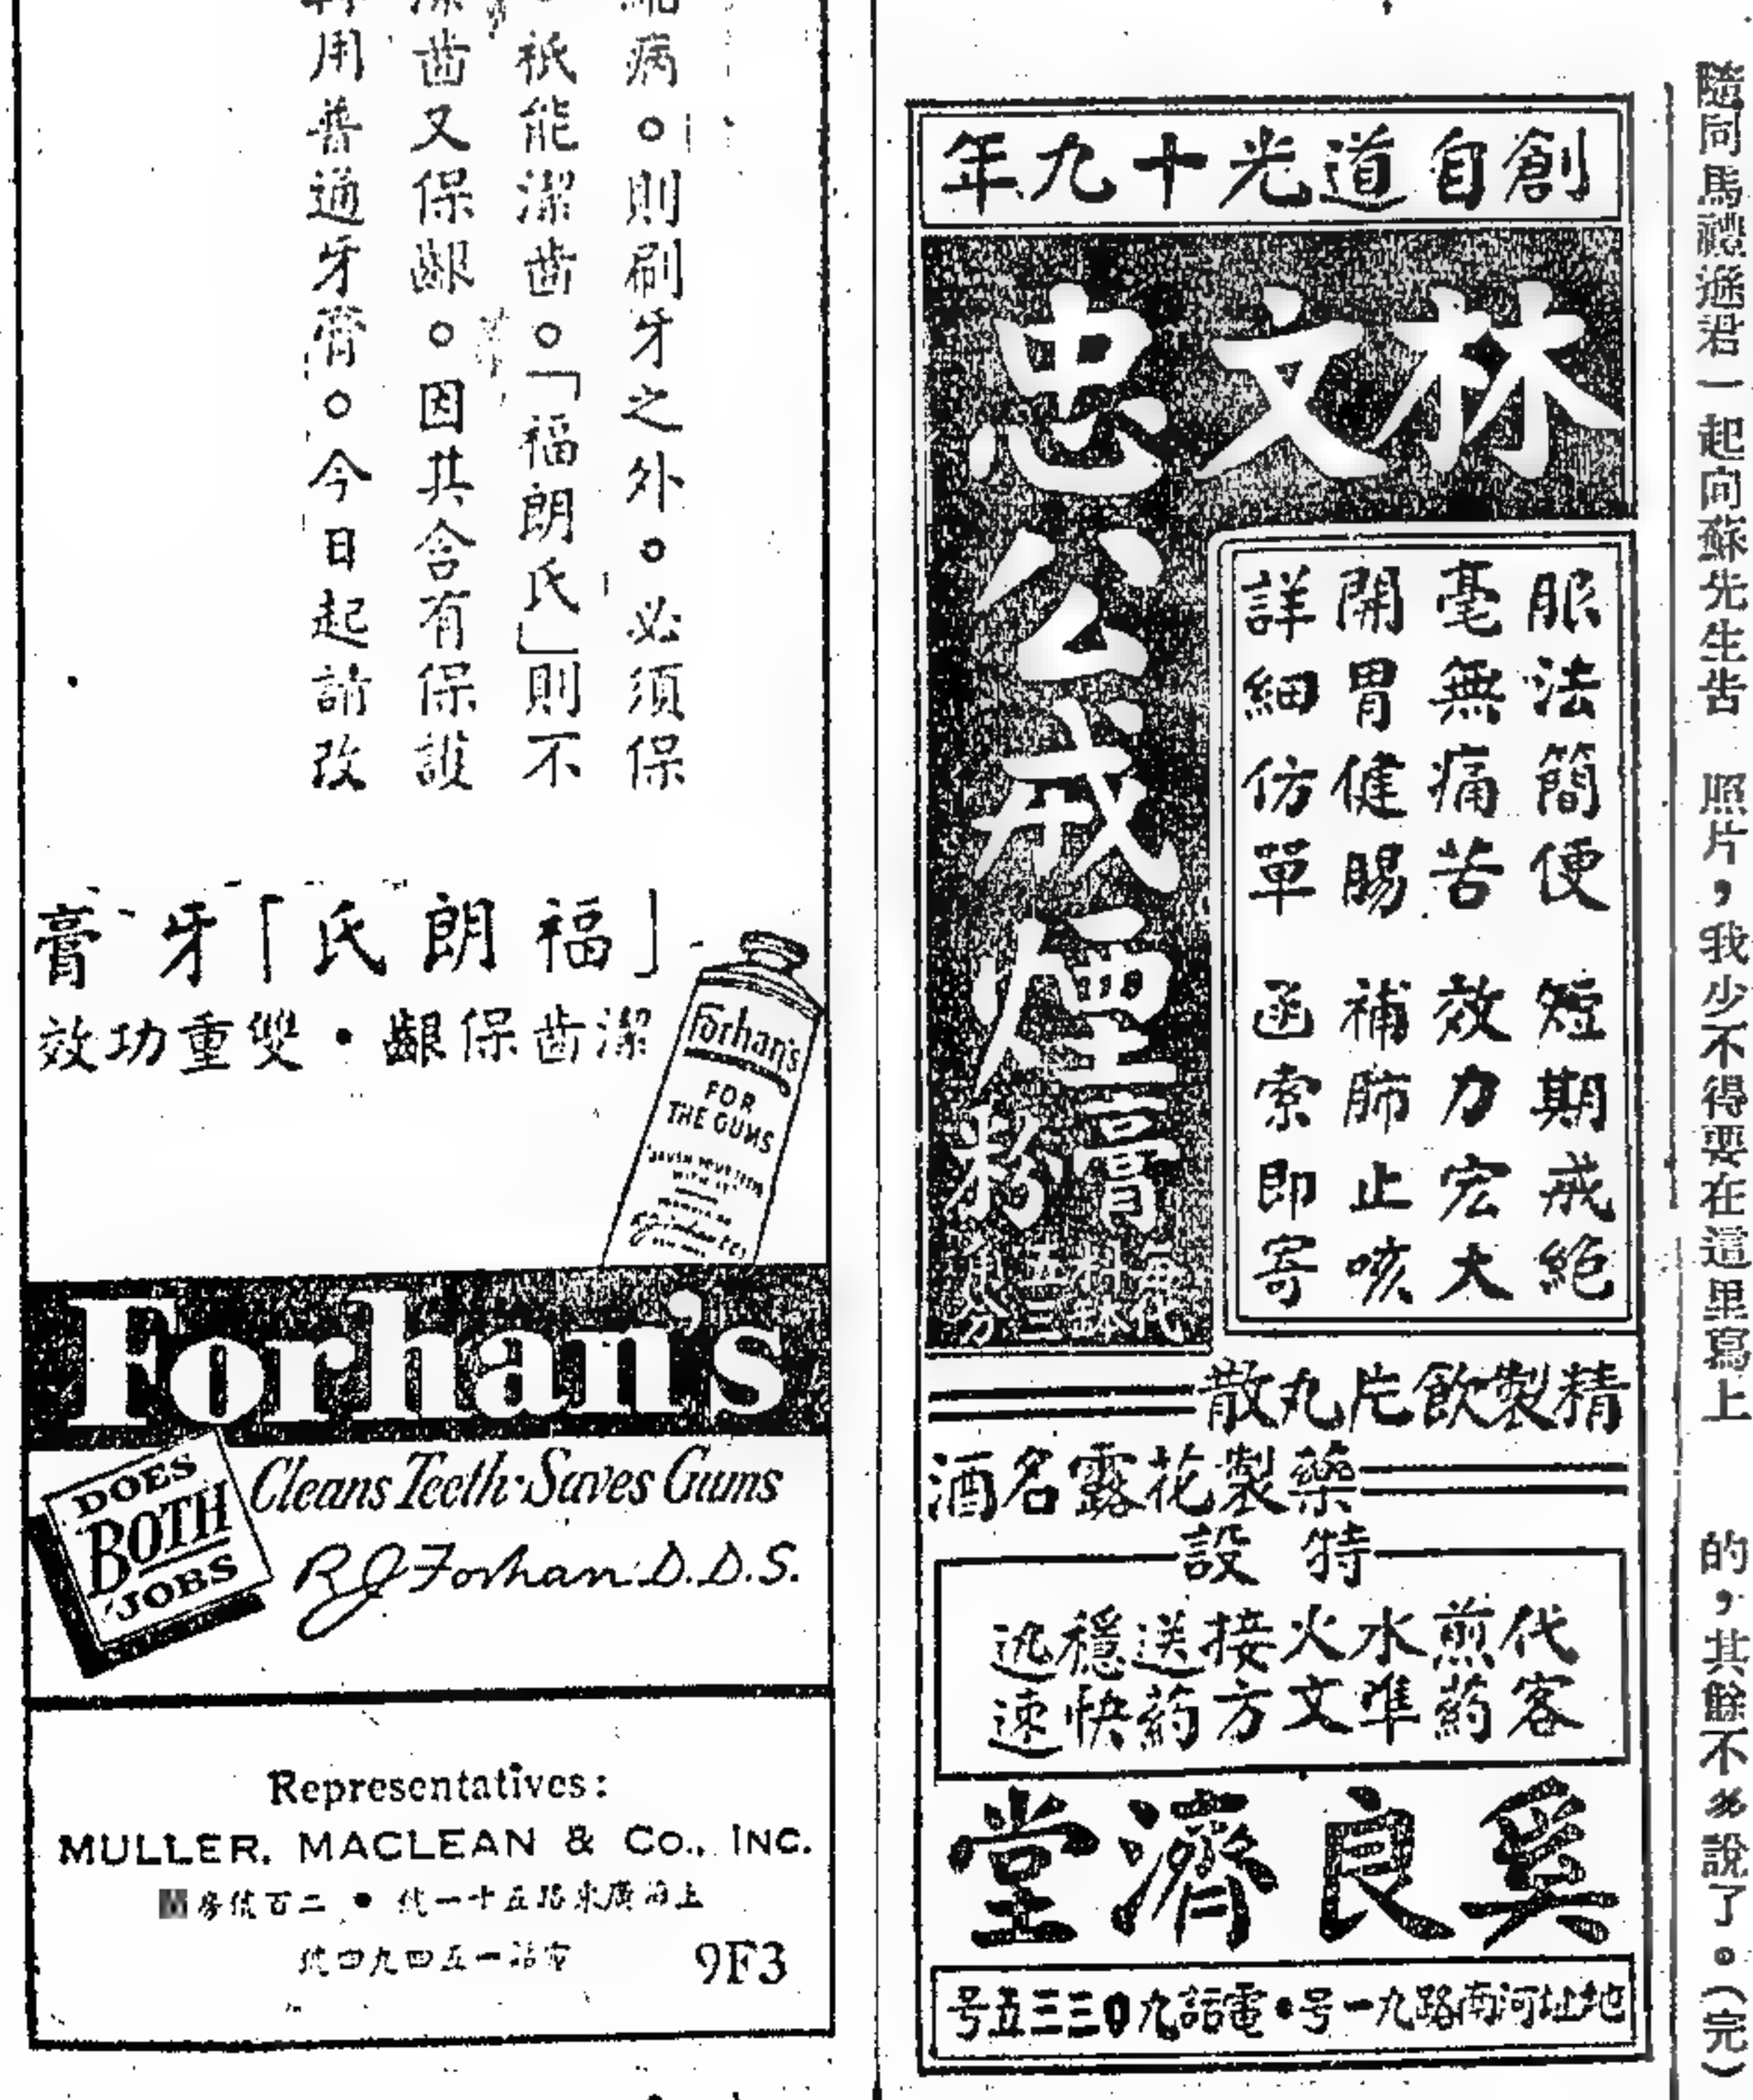 隨同馬禮遜君一起向蘇先生告
照片，我少不得要在這里寫上
的，其餘不多說了。(完)
創自道光十九年
林文忠公戒煙
膏
粉
服法簡便 短期戒絕
毫無痛苦 效力宏大
開胃健賜 補肺止咳
詳細仿單 函索即寄
精製飲片丸散
藥製花露名酒
特設
代客煎藥水準火文接方送葯穩快迅速
奚良濟堂
地址河南路九一号•電話九〇三三五号
病。則刷牙之外。必須保
祇能潔齒。「福朗氏」則不
齒又保齦。因其含有保護
用普通牙膏。今日起請改
「福朗氏」牙膏
潔齒保齦•雙重功效
Forhan's
FOR
THE GUMS
Forhan's
DOES
BOTH
JOBS
Cleans Teeth·Saves Gums
R J Forhan D.D.S.
Representatives:
MULLER, MACLEAN & Co., INC.
上海廣東路五十一號 • 二百號房間
電話一五四九四號
9F3